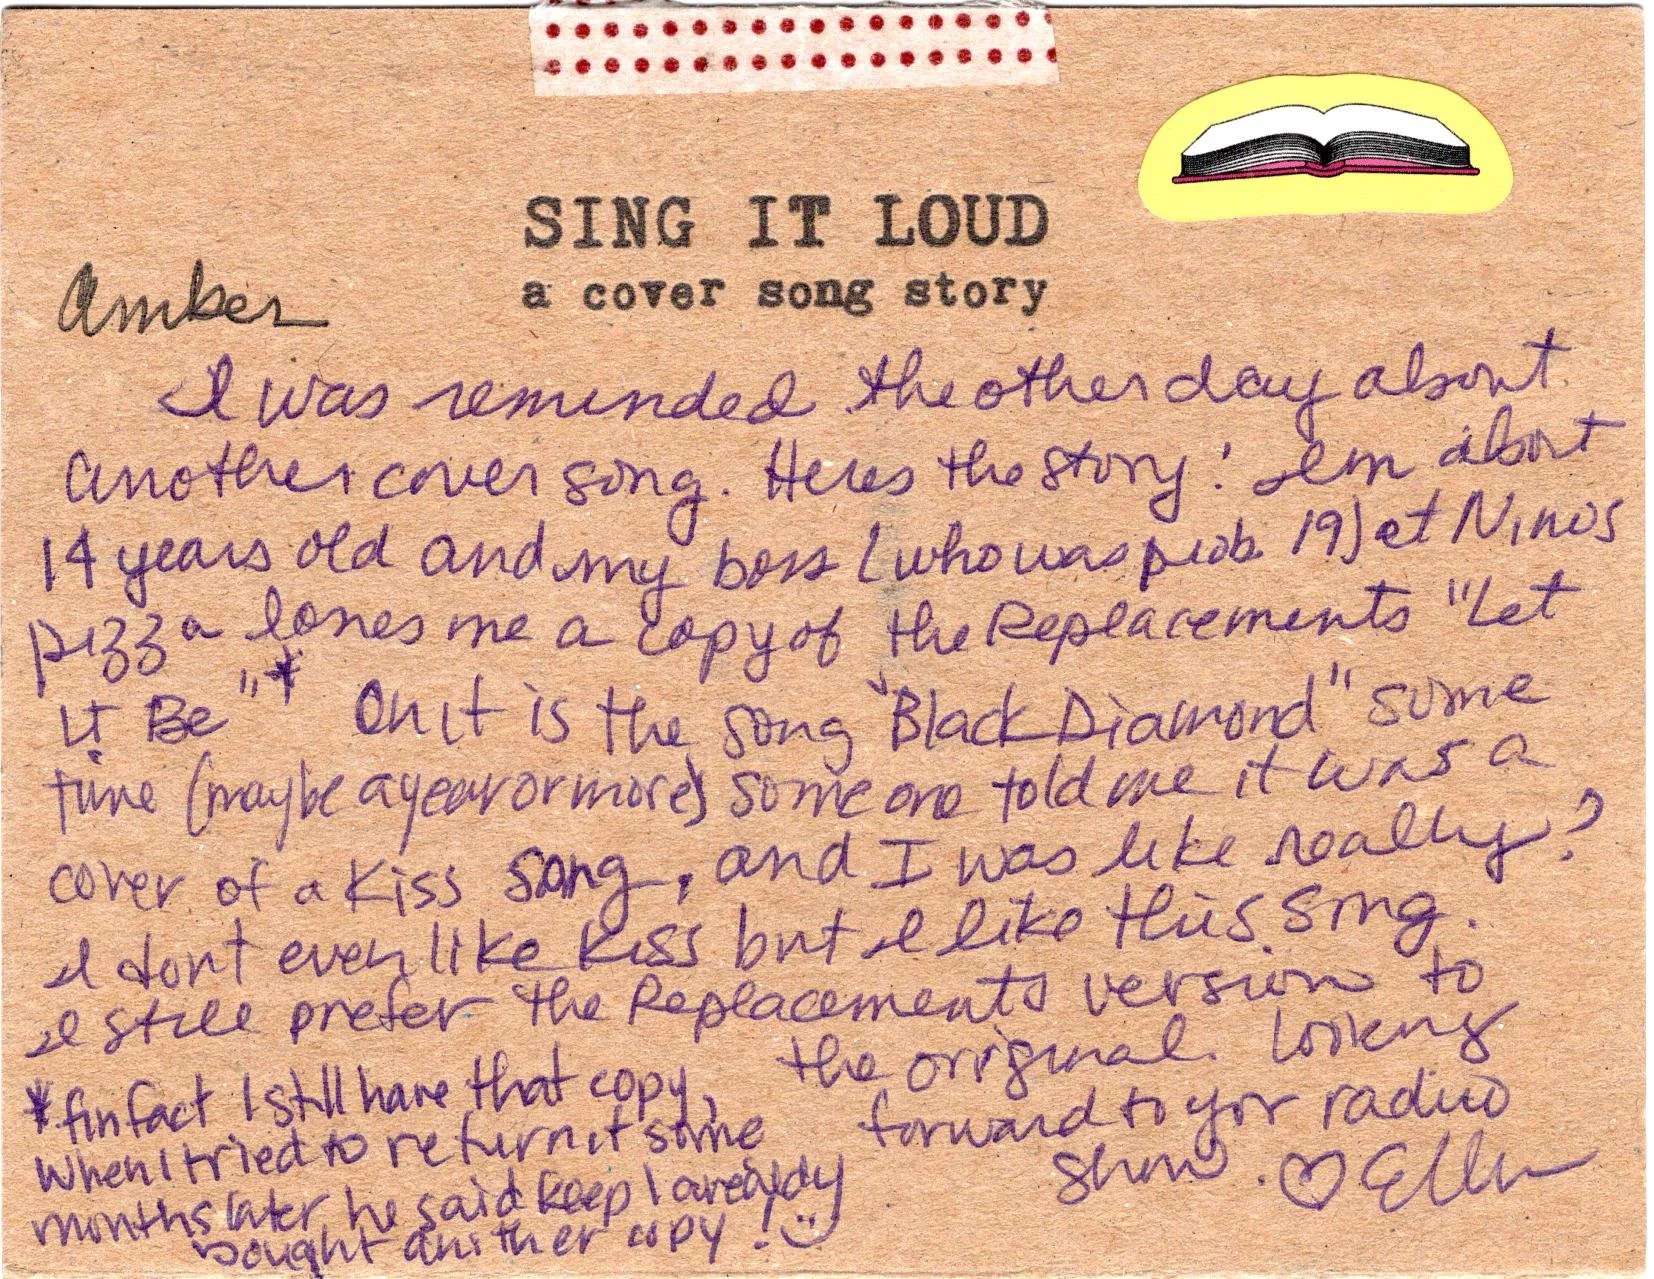 SING IT LOUD
a cover song story
Amber
I was reminded the other day about
another cover song. Heres the story! Im about
14 years old and my boss (who was prob. 19) at Ninos
pizza lones me a copy of the Replacements "Let
It Be"* On it is the song "Black Diamond" some
time (maybe a year or more) someone told me it was a
cover of a Kiss song, and I was like really?
I dont even like Kiss but I like this song.
I still prefer the Replacements version to
the original. Looking
forward to your radio
show. ♡ Ellen
* fin fact I still have that copy,
when I tried to return it some
months later he said keep I already
bought another copy! :)